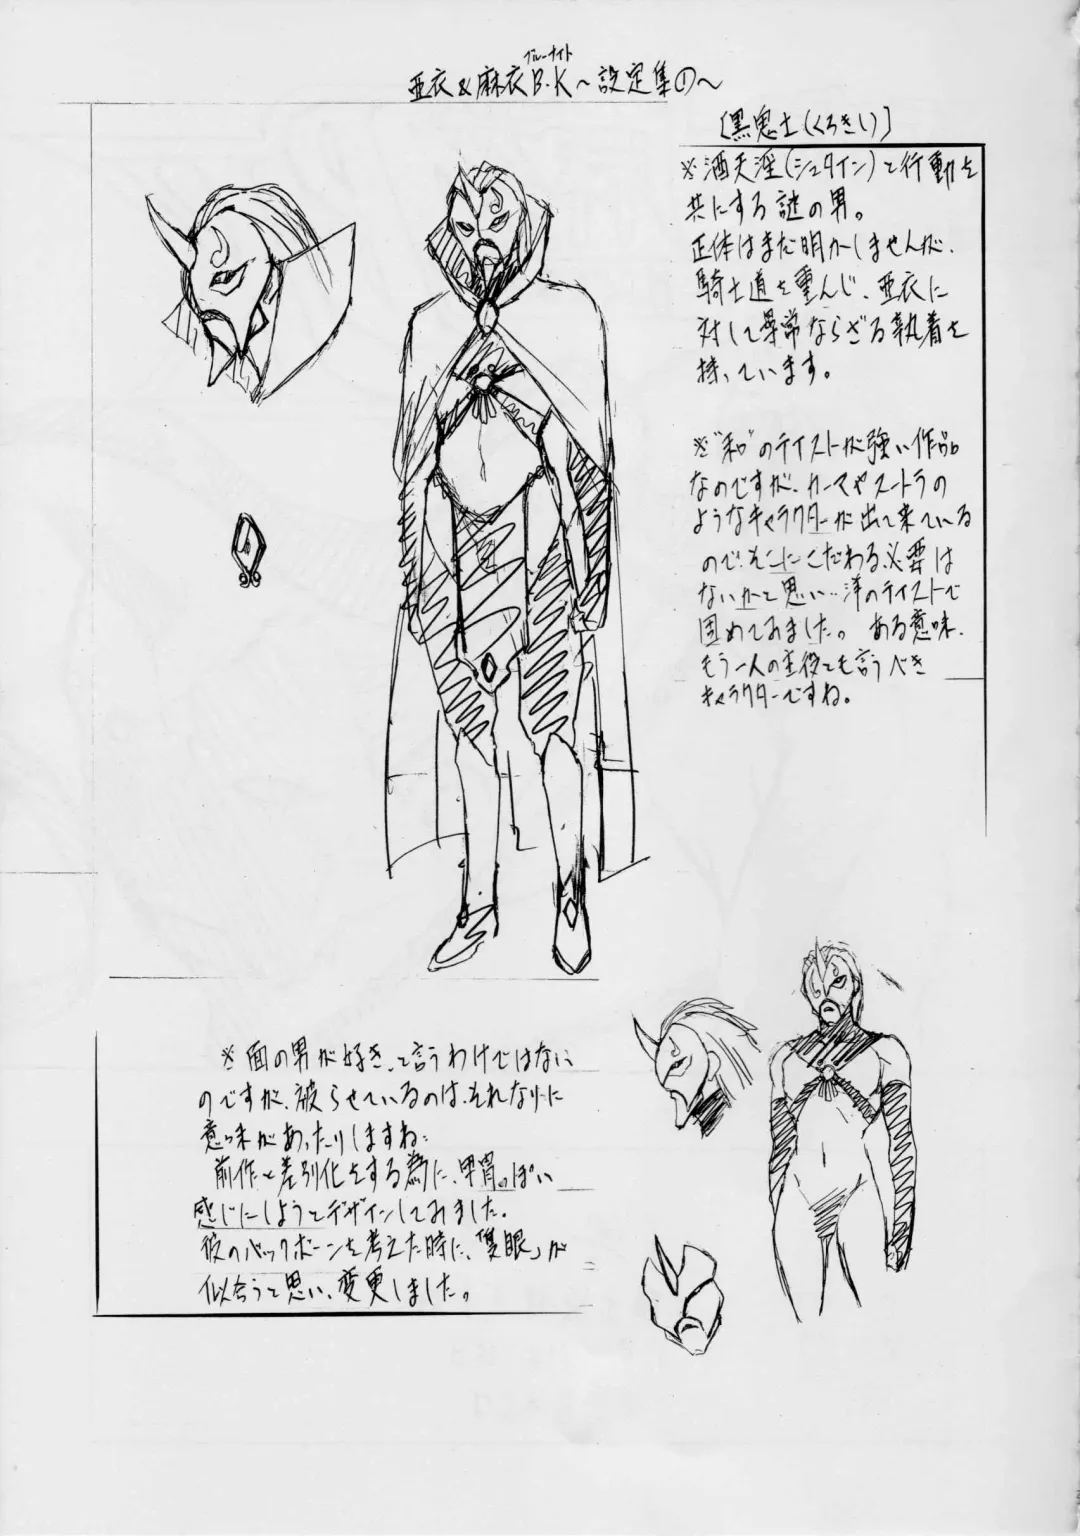 ブルーナイト
亜衣&麻衣B.K〜設定集①〜
[黒鬼士(くろきし)]
※酒天淫(シュタイン)と行動を
共にする謎の男。
正体はまだ明かしませんが、
騎士道を重んじ、亜衣に
対して尋常ならざる執着を
持っています。
※"和"のテイストが強い作品
なのですが、カーマやスートラの
ようなキャラクターが出て来ている
ので、そこにこだわる必要は
ないかと思い…洋のテイストで
固めてみました。ある意味、
もう一人の主役とも言うべき
キャラクターですね。
※面の男が好き、と言うわけではない
のですが、被らせているのは、それなりに
意味があったりしますね…
前作と差別化をする為に、甲冑っぽい
感じにしようとデザインしてみました。
彼のバックボーンを考えた時に、「隻眼」が
似合うと思い、変更しました。